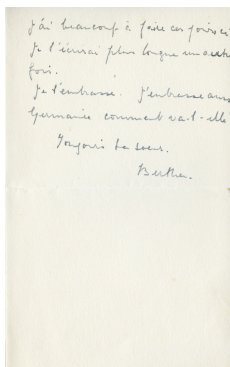 j'ai beaucoup à faire ces jours ci
Je t'écrirai plus longue une autre
fois.
Je t'embrasse. J'embrasse aussi
Germaine comment va-t-elle
Toujours ta soeur.
Berthe.